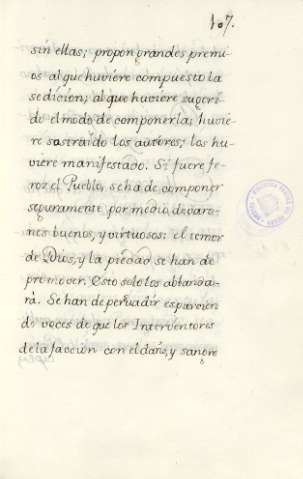 107.
sin ellas; propon grandes premi-
os al que huviere compuesto la
sedicion; al que huviere sugeri-
do el modo de componerla; huvie-
re sastraído los autores; los hu-
viere manifestado. Si fuere fe-
roz el Pueblo, se ha de componer
seguramente por medio de varo-
nes buenos, y virtuosos: el temor
de Dios, y la piedad se han de
promover. Esto solo los ablanda-
rà. Se han de persuadir esparcien-
do voces de que los Interventores
de la faccion con el daño, y sangre